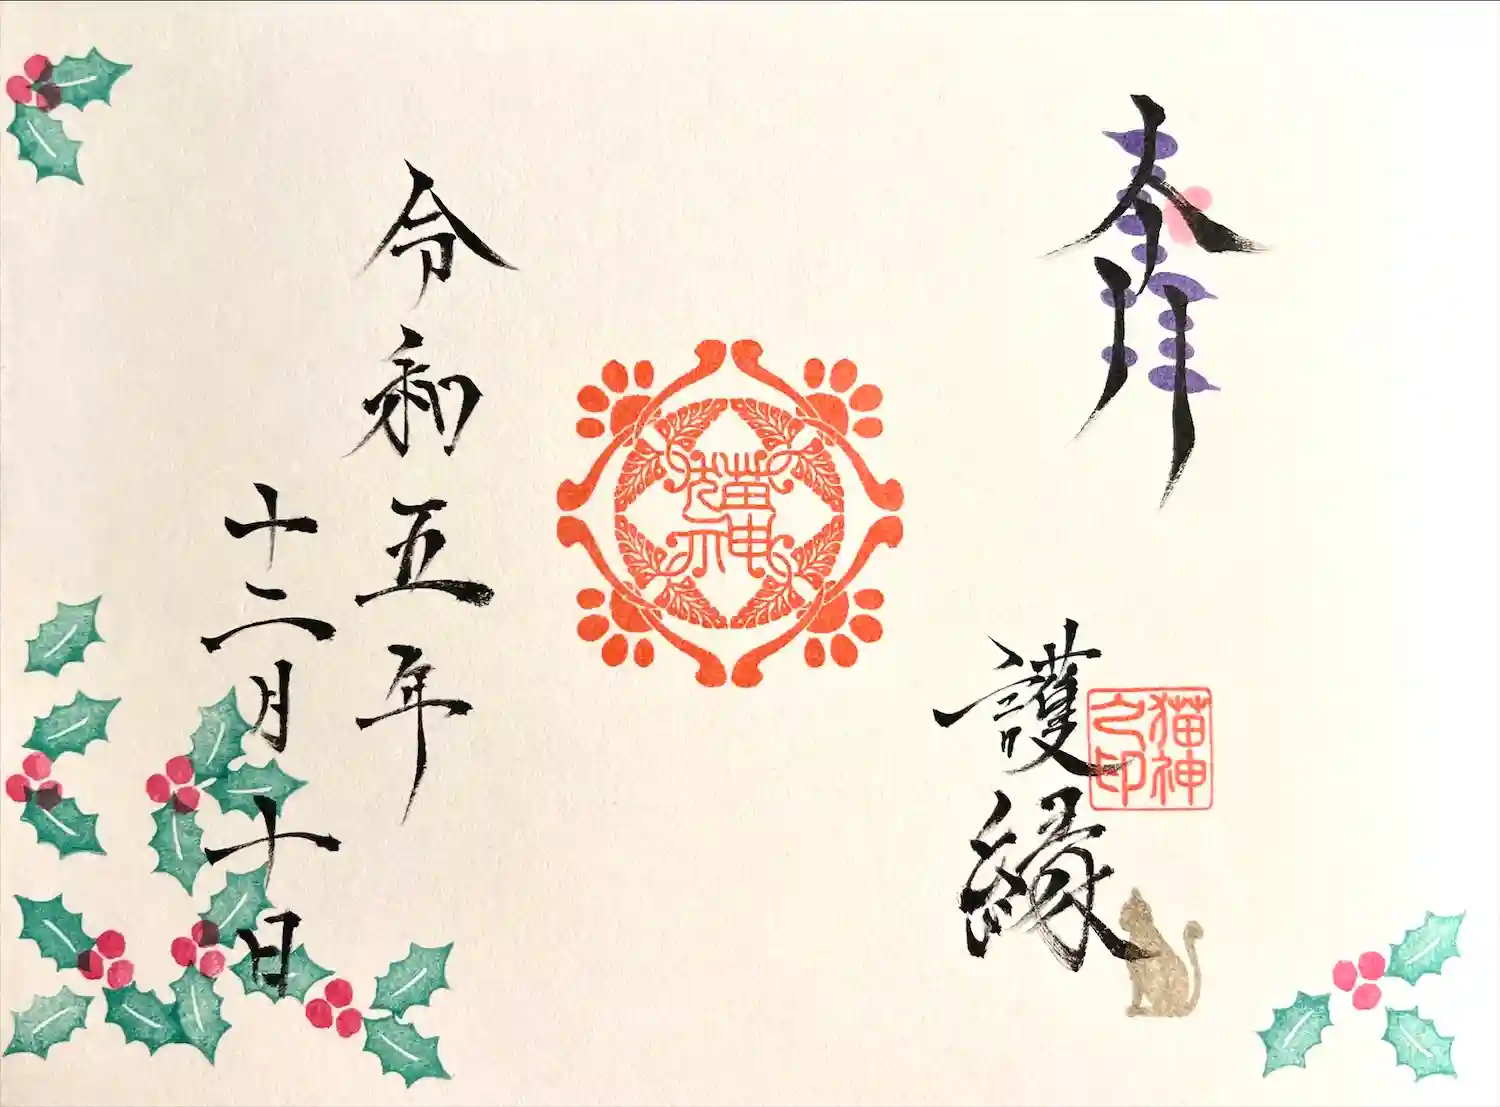 奉拝
護縁
猫神之印
猫神
令和五年
十二月十日